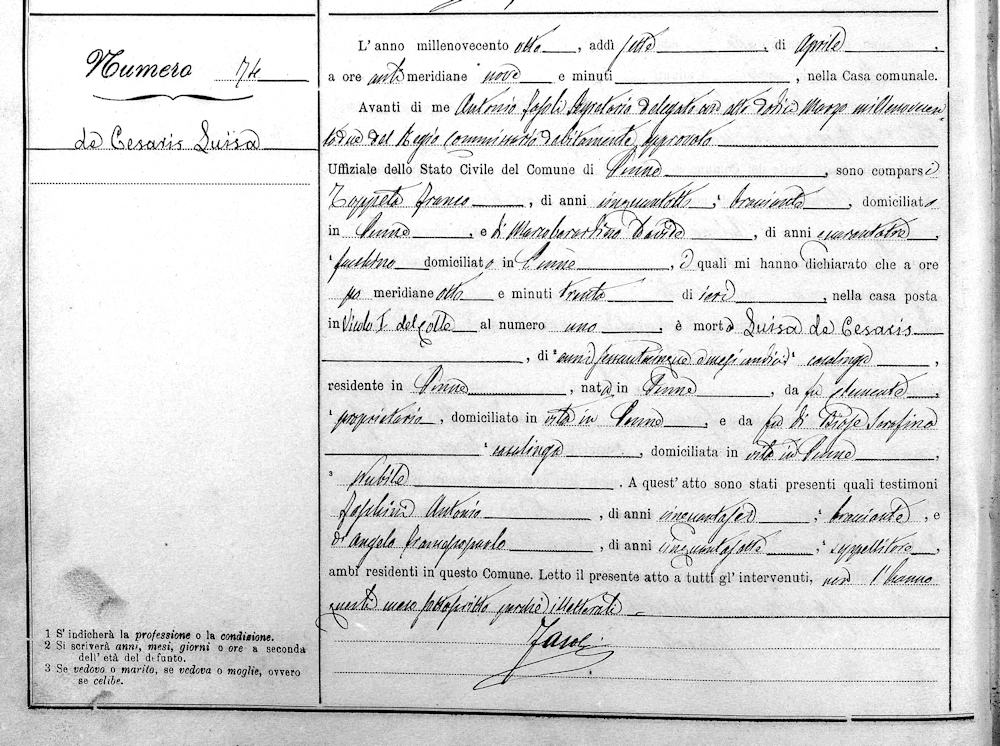 Numero 74
de Cesaris Luisa
L'anno millenovecento otto, addì sette, di Aprile,
a ore anti meridiane nove e minuti, nella Casa comunale.
Avanti di me Antonio Segretario delegato con atto dodici Marzo millenovecen-
todue del Regio Commissario debitamente approvato
Uffiziale dello Stato Civile del Comune di Penne, sono comparsi
Toppeta Franco, di anni cinquantotto, ¹ bracciante, domiciliato
in Penne, e di Marcoberardino Davide, di anni quarantatre,
¹ facchino domiciliato in Penne, i quali mi hanno dichiarato che a ore
po meridiane otto e minuti trenta di ieri, nella casa posta
in Vicolo I del Colle al numero uno, è morta Luisa de Cesaris
, di ² anni sessantacinque e mesi undici ¹ casalinga,
residente in Penne, nata in Penne, da fu Clemente,
¹ proprietario, domiciliato in vita in Penne, e da fu di Biase Serafina
¹ casalinga, domiciliata in vita in Penne,
³ nubile. A quest'atto sono stati presenti quali testimoni
Antonio, di anni cinquantasei, ¹ bracciante, e
di Angelo Francescopaolo, di anni cinquantasette, ¹ seppellitore,
ambi residenti in questo Comune. Letto il presente atto a tutti gl'intervenuti, non l'hanno
questi meco sottoscritto perchè illetterati
1 S'indicherà la professione o la condizione.
2 Si scriverà anni, mesi, giorni o ore a seconda
dell'età del defunto.
3 Se vedovo o marito, se vedova o moglie, ovvero
se celibe.